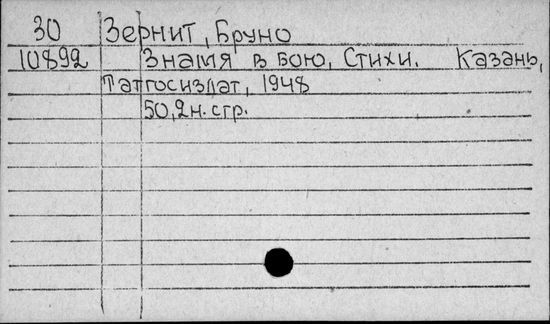 30 Зернит, Бруно
10892 Знамя в бою, Стихи. Казань,
Татгосиздат, 1948
50,2н.стр.